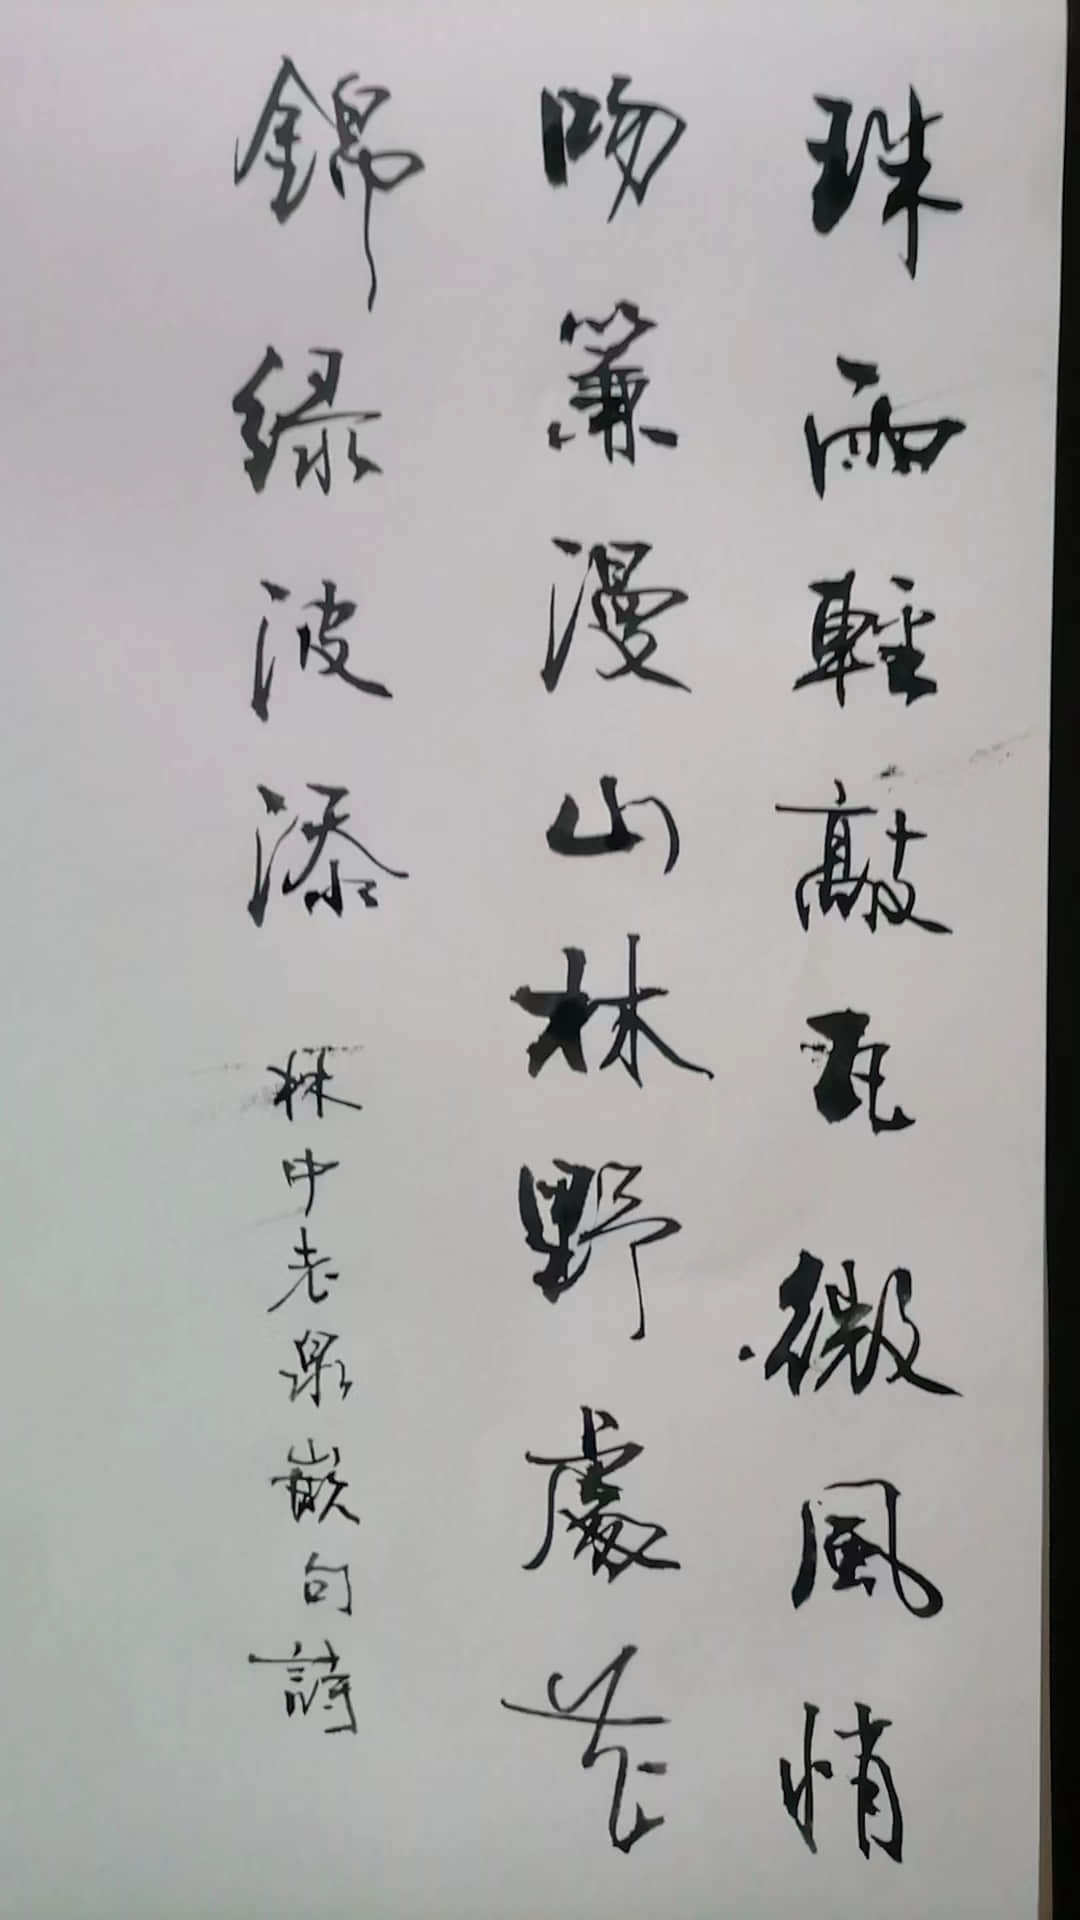 珠雨輕敲瓦微風悄
吻簾漫山林野處花
錦綠波添
林中老泉嵌句詩